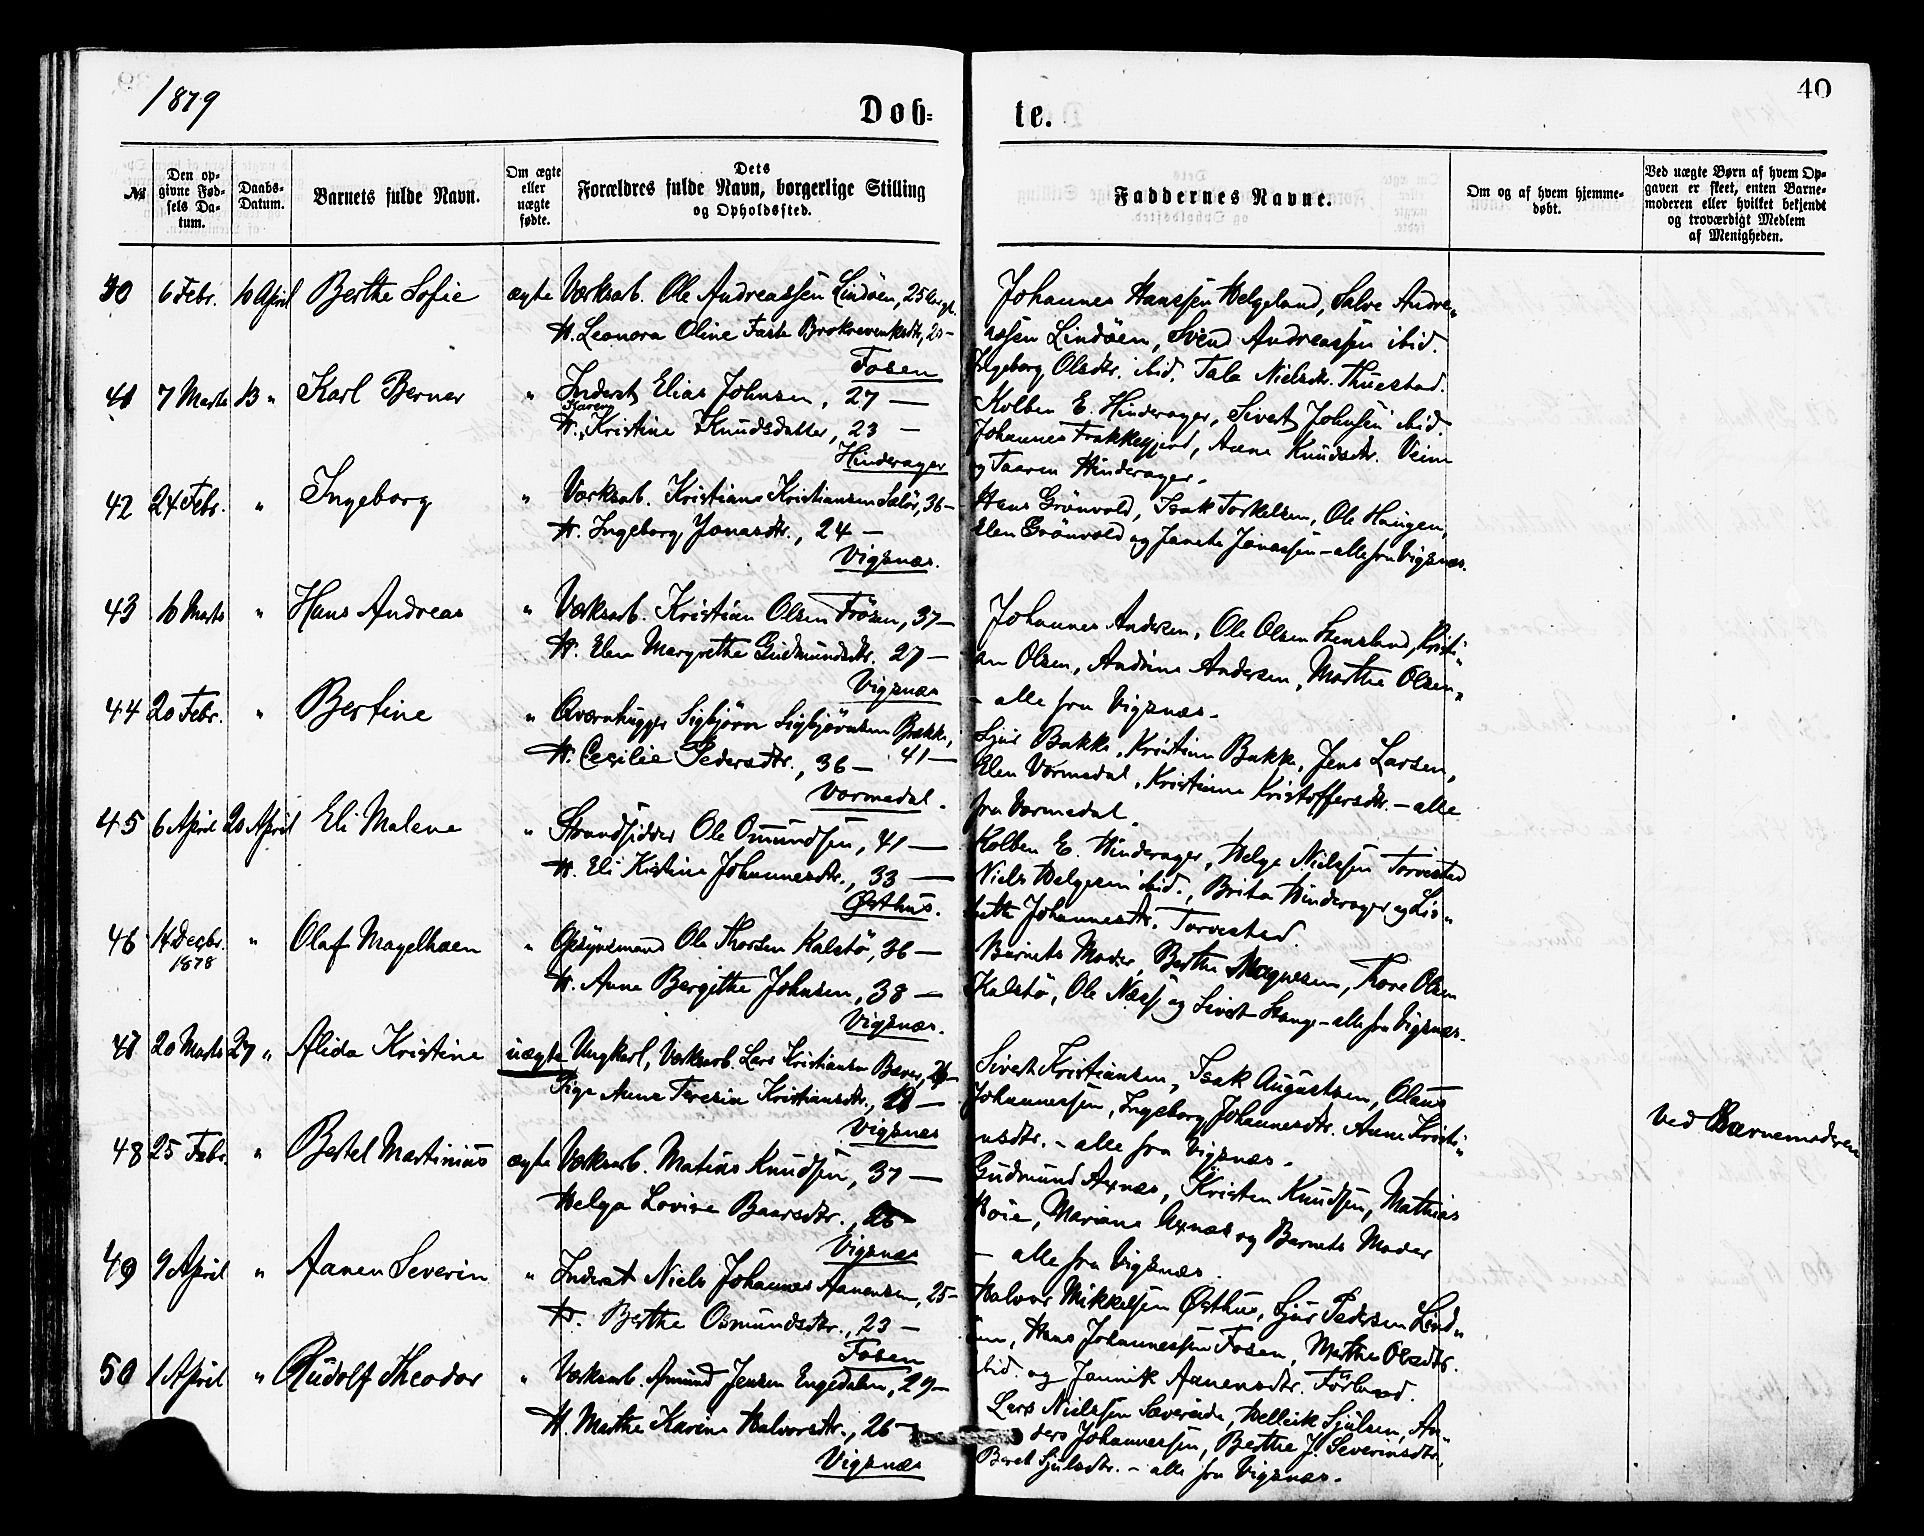 1879
Dob-
te.
40
№
Den op-
givne Fød-
sels Da-
tum.
Daabs-
Datum.
Barnets fulde Navn.
Om ægte
eller
uægte
fødte.
Dets
Forældres fulde Navn, borgerlige Stilling
og Opholdssted.
Faddernes Navne.
Om og af hvem hjemme-
døbt.
Ved uægte Børn af hvem Op-
gaven er skeet, enten Barne-
moderen eller hvilket bekjendt
og troværdigt Medlem
af Menigheden.
6 Febr. 10 April Berthe Sofie ægte Værksarb. Ole Andreassen Lindøen, 25
H. Leonora Oline Faste 20 –
Fosen
Johannes Hanssen Helgeland, Salve Andre„
assen Lindøen, Svend Andreassen ibid.
Ingeborg Olsdtr. ibid. Tala Nielsdtr. Thuestad.
41 7 Marts 13 „ Karl Bernar „ Inderst Elias Johnsen, 27 –
Karen
H. Kristine Knudsdatter, 23 –
Hinderager
Kolben E. Hinderager, Sivert Johnsen ibid.
Johannes Frakkagjerd, Anne Knudsdtr. Veim
og Taaren Hinderager.
42 24 Febr. „ Ingeborg „ Værksarb. Kristian Kristiansen 36 –
H. Ingeborg Jonasdtr., 24 –
Vigsnæs.
Hans Grönvold, Isak Torkelsen, Ole Haugen,
Elen Grönvold og Janete Jonassen – alle fra Vigsnæs.
43 10 Marts „ Hans Andreas „ Værksarb. Kristian Olsen Frösen, 37 –
H. Elen Margrethe Gudmundsdtr. 27 –
Vigsnæs
Johannes Andersen, Ole Olsen Stensland, Kristi„
an Olsen, Andrine Andersen, Marthe Olsen„
– alle fra Vigsnæs.
44 20 Febr. „ Bertine „ Qværnhugger Sigbjörn Sigbjörnsen Bakke,
41 –
H. Cecilie Pedersdtr., 36 –
Vormedal.
Sjur Bakke, Kristine Bakke, Jens Larsen,
Elen Vormedal, Kristianne Kristoffersdtr. – alle
fra Vormedal.
45 6 April 20 April Eli Malene „ Strandsidder Ole Omundsen, 41 –
H. Eli Kistine Johannesdtr., 33 –
Østhus.
Kolben E. Hinderager, Helge Nielsen Torvestad
Niels Helgesen ibid., Brita Hinderager og Lis„
bette Johannesdtr. Torvestad.
46 14 Decbr. „ Olaf Magelhaen „ Opsynsmand Ole Thorsen Kalstø, 36 –
1878
H. Anne Bergitte Johnsen, 38 –
Vigsnæs.
Barnets Moder, Berthe Magnesen, Thore Olsen
Kalstø, Ole Næss og Sivert Stange – alle fra Vigsnæs.
47 20 Marts 27 „ Alida Kristine uægte Ungkarl, Værksarb. Lars Kristiansen
Pige Anne Teresia Kristiansdtr.,
Vigsnæs
Sivert Kristiansen, Isak Augustsen, Olaus
Johannessen, Ingeborg Johannesdtr. Anne Kristi„
ansdtr. – alle fra Vigsnæs.
Ved Barnemoderen
48 25 Febr. „ Bertel Martinius ægte Værksarb. Matias Knudsen, 37 –
Helga Lovise Baarsdtr.,
Vigsnæs
Gudmund Axnæs, Kristen Knudsen, Mathias
Høie, Mariane Axnæs og Barnets Moder
– alle fra Vigsnæs.
49 9 April „ Aanen Severin „ Inderst Niels Johannes Aanensen, 25 –
H. Berthe Osmundsdtr., 23 –
Fosen
Halvor Mikkelsen Østhus, Sjur Pedersen Lind„
øen, Hans Johannessen Fosen, Marthe Olsdtr.
ibid. og Jannik Aanensdtr. Förland.
50 1 April „ Rudolf Theodor „ Værksarb. Amund Jensen Engedalen, 29 –
H. Marthe Karine Halvorsdtr., 26 –
Vigsnæs
Lars Nielsen Sæverude, Helleik Sjulsen, An„
ders Johannessen, Berthe J. Severinsdtr.,
Beret Sjulsdtr. – alle fra Vigsnæs.